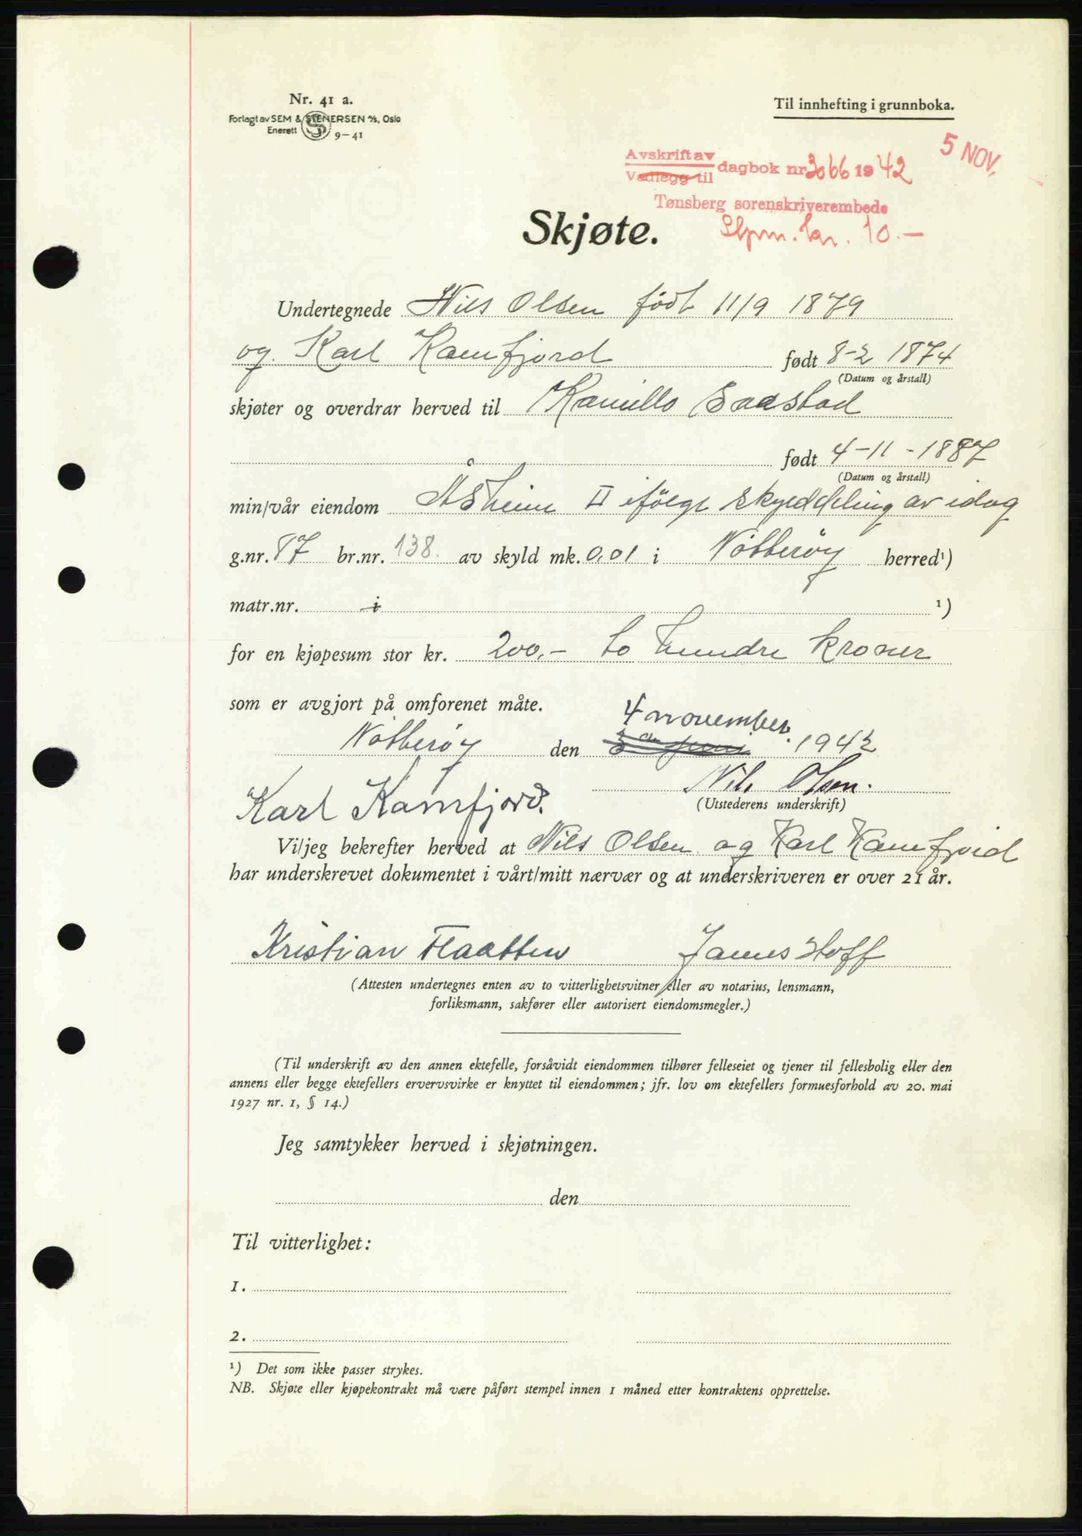 Nr. 41 a.
Forlagt av SEM & STENERSEN A/S, Oslo
Enerett 9-41
Til innhefting i grunnboka.
5 NOV.
Avskrift av
Vedlegg til
dagbok nr. 3066 1942
Tønsberg sorenskriverembede
Stpm. kr. 10.-
Skjøte.
Undertegnede Nils Olsen født 11/9 1879
og Karl Kamfjord født 8-2 1874
(Datum og årstall)
skjøter og overdrar herved til Kamillo Baastad
født 4-11-1887
(Datum og årstall)
min/vår eiendom Åsheim II ifölge skylddeling av idag
g.nr. 87 br.nr. 138. av skyld mk. 0,01 i Nötteröy herred¹)
matr.nr. i ¹)
for en kjøpesum stor kr. 200,- to hundre kroner
som er avgjort på omforenet måte.
4 november
Nötteröy den 1942
Nils Olsen.
Karl Kamfjord.
(Utstederens underskrift)
Vi/jeg bekrefter herved at Nils Olsen og Karl Kamfjord
har underskrevet dokumentet i vårt/mitt nærvær og at underskriveren er over 21 år.
Kristian Flaatten James Hoff
(Attesten undertegnes enten av to vitterlighetsvitner eller av notarius, lensmann,
forliksmann, sakfører eller autorisert eiendomsmegler.)
(Til underskrift av den annen ektefelle, forsåvidt eiendommen tilhører felleseiet og tjener til fellesbolig eller den
annens eller begge ektefellers ervervsvirke er knyttet til eiendommen; jfr. lov om ektefellers formuesforhold av 20. mai
1927 nr. 1, § 14.)
Jeg samtykker herved i skjøtningen.
den
Til vitterlighet:
1.
2.
¹) Det som ikke passer strykes.
NB. Skjøte eller kjøpekontrakt må være påført stempel innen 1 måned etter kontraktens opprettelse.